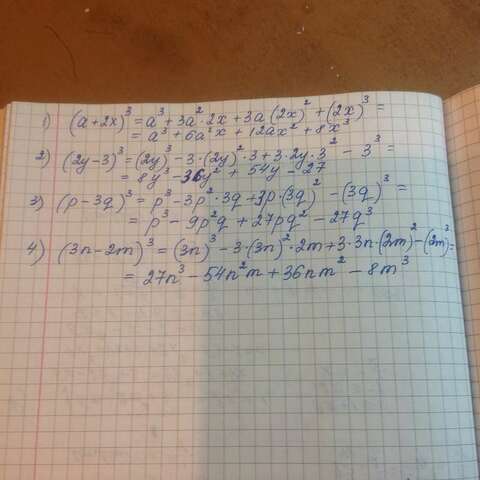 1) (a+2x)³ = a³ + 3a²·2x + 3a(2x)² + (2x)³ =
= a³ + 6a²x + 12ax² + 8x³
2) (2y-3)³ = (2y)³ - 3·(2y)²·3 + 3·2y·3² - 3³ =
= 8y³ - 36y² + 54y - 27
3) (p-3q)³ = p³ - 3p²·3q + 3p·(3q)² - (3q)³ =
= p³ - 9p²q + 27pq² - 27q³
4) (3n-2m)³ = (3n)³ - 3·(3n)²·2m + 3·3n·(2m)² - (2m)³ =
= 27n³ - 54n²m + 36nm² - 8m³